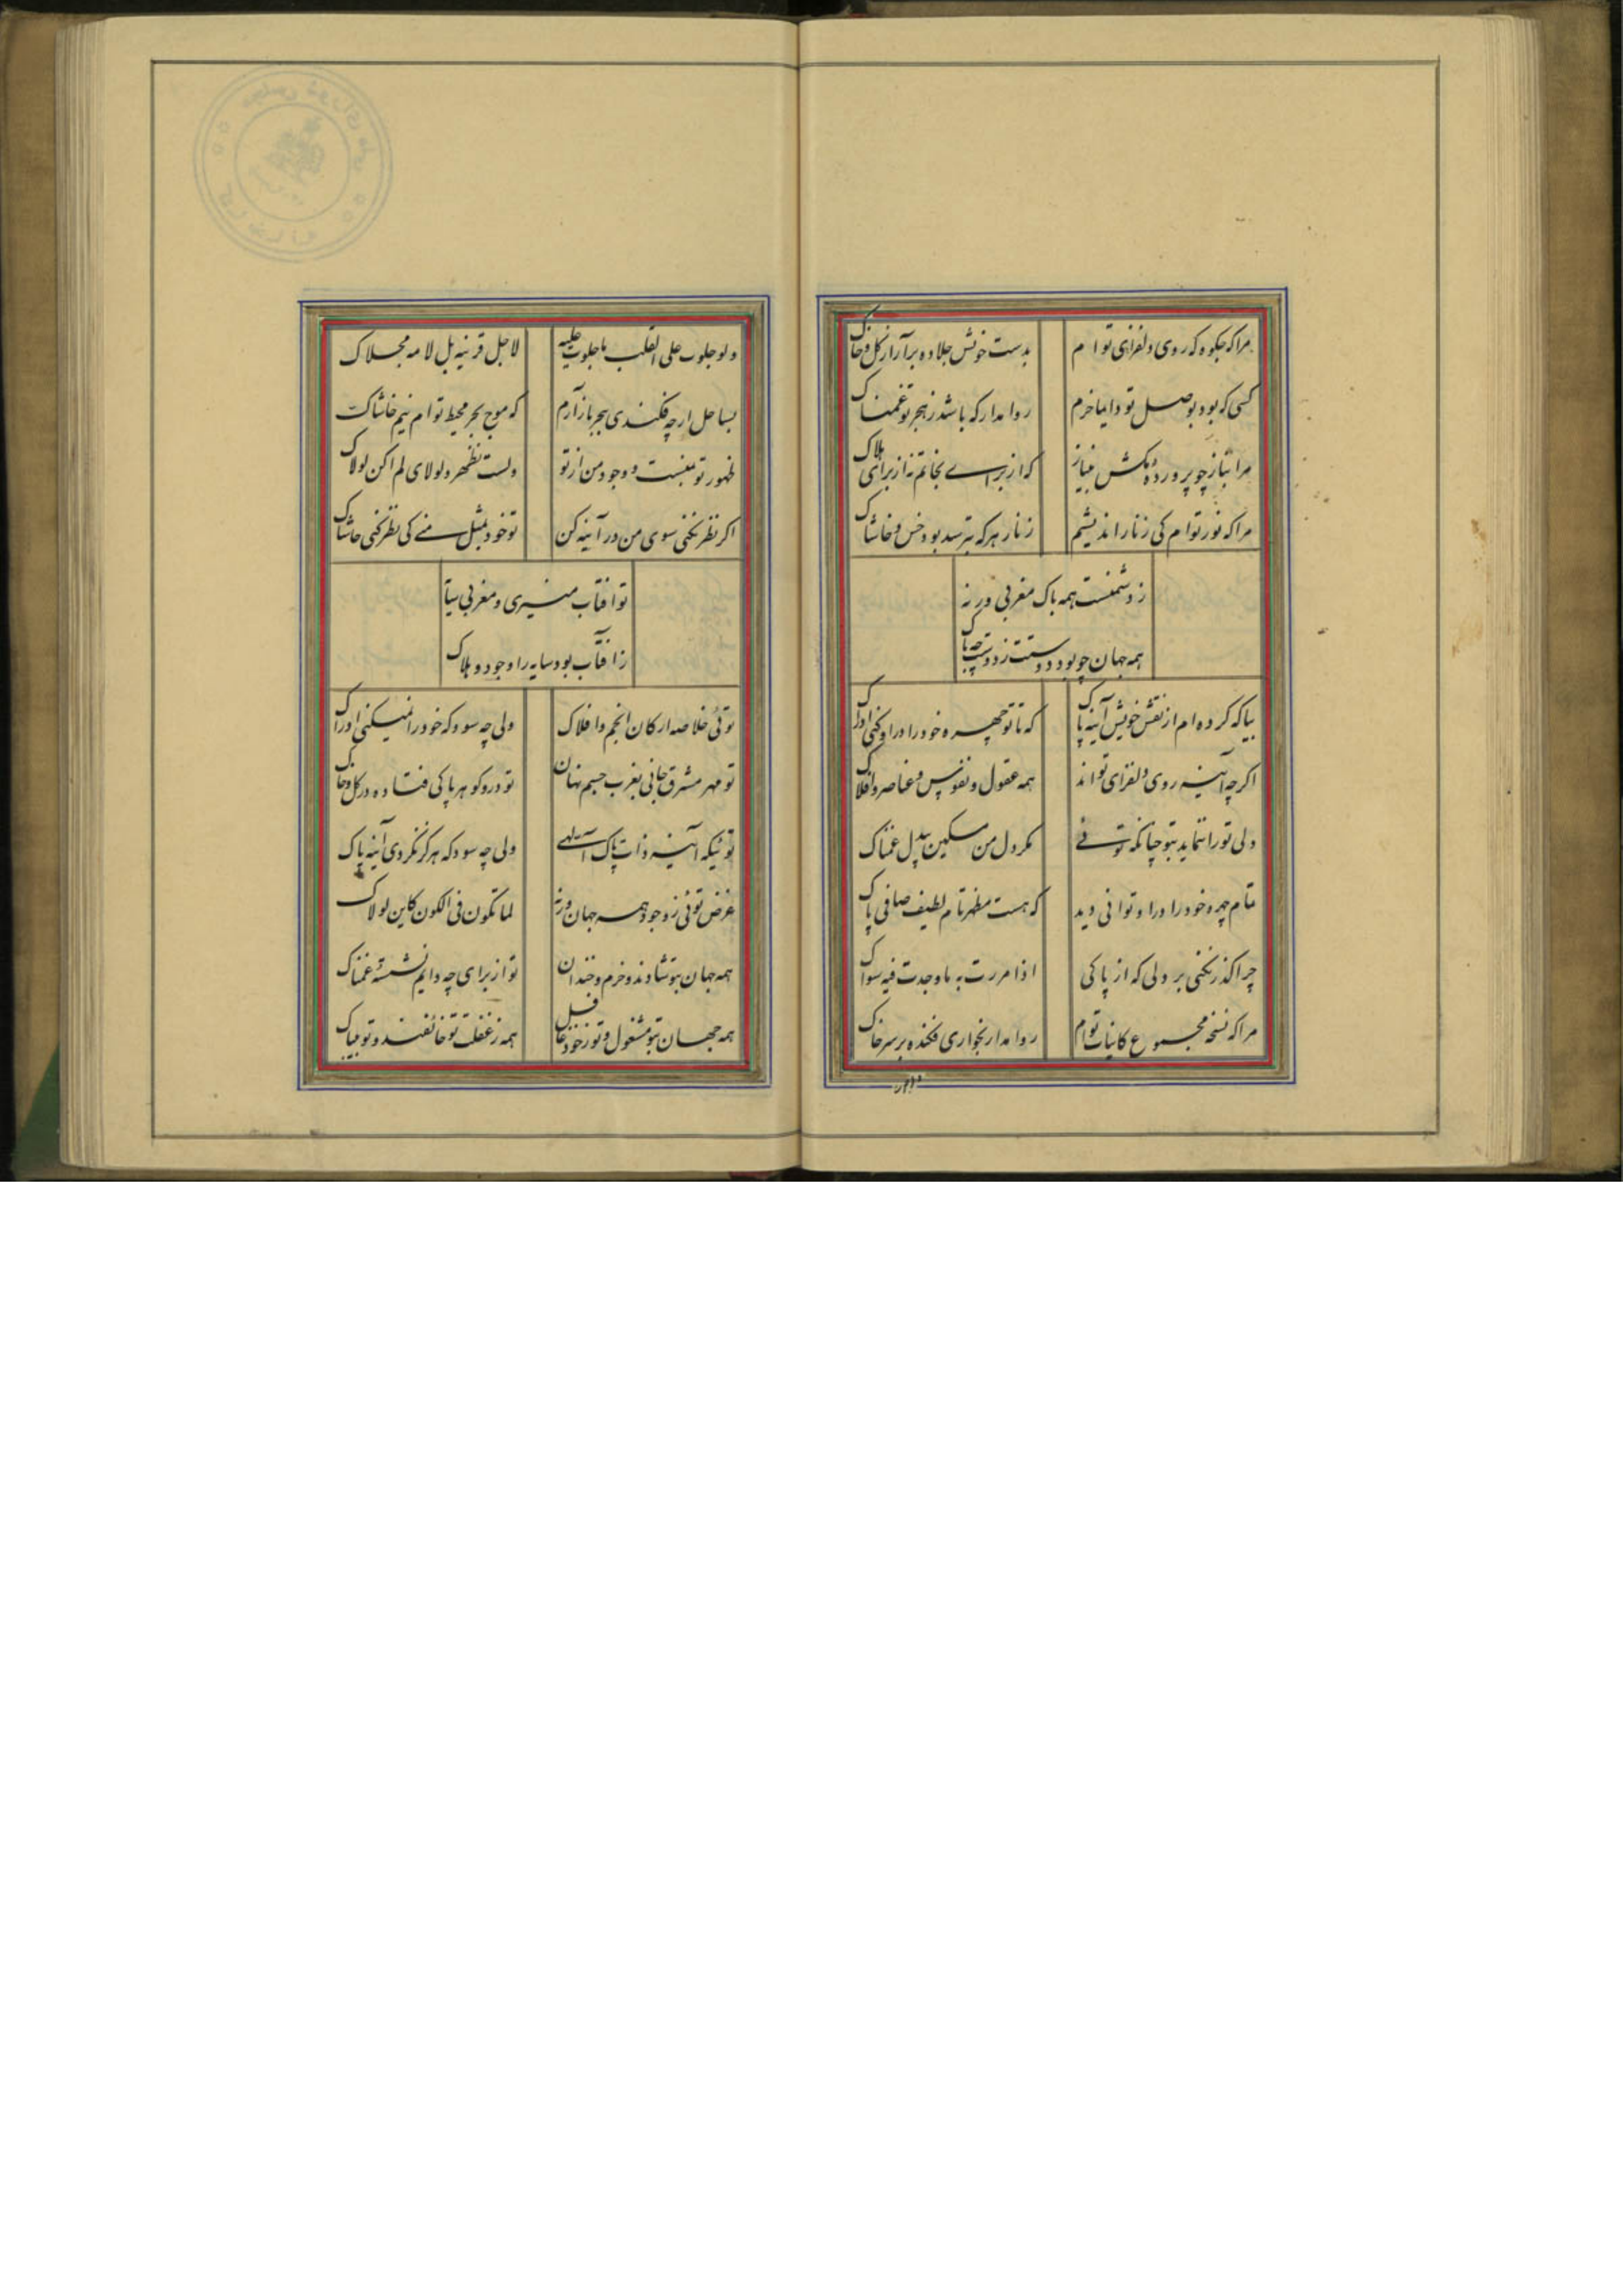 مرا که جلوه که روی دلفزای توام بدست خویش جلا ده برآر از گل و خاک
کسی که بود بوصل تو دایما خرم روا مدار که باشد ز هجر تو غمناک
مرا بناز چو پرورده مکش به نیاز که از برای نجاتم نه از برای هلاک
مرا که نور توام کی ز نار اندیشم ز نار هر که بترسد بود خس و خاشاک
ز دشمنست همه باک مغربی ورنه
همه جهان چو بود دوست ز دوست چه باک
بیا که کرده ام از نقش خویش آینه پاک که تا تو چهره خود را درا و کنی ادراک
اگر چه آینه روی دلفزای تواند همه عقول و نفوس و عناصر و افلاک
ولی تو را ننماید بتو چنانکه توئی مگر دل من مسکین بیدل غمناک
تمام چهره خود را درا و توانی دید که هست مظهر تام لطیف صافی پاک
چرا گذر نکنی بر دلی که از پاکی اذا مررت به ما وجدت فیه سواک
مرا که نسخه مجموع کائنات توام روا مدار بخواری فکنده بر سر خاک
ولو جلوب علی القلب ما جلوت علیه لاجل قرنیه بل لامه مجلاک
بساحل ار چه فکندی ببحر باز آرم که موج بحر محیط توام نیم خاشاک
ظهور تو بمنست و وجود من از تو ولست تظهر و لولای لم اکن لولاک
اگر نظر نکنی سوی من در آینه کن تو خود بمثل منی کی نظر کنی حاشاک
تو افتاب منیری و مغربی سایه
ز افتاب بود سایه را وجود و هلاک
توئی خلاصه ارکان انجم و افلاک ولی چه سود که خود را نمیکنی ادراک
تو مهر مشرق جانی بغرب جسم نهان تو در و گوهر پاکی فتاده در گل و خاک
توئیکه آینه ذات پاک آلهی ولی چه سود که هرگز نکردی آینه پاک
غرض توئی ز وجود همه جهان ورنه لما تکون فی الکون کاین لولاک
همه جهان بتو شادند و خرم و خندان تو از برای چه دایم نشسته غمناک
همه جهان بتو مشغول و تو ز خود غافل همه ز غفلت تو خائفند و تو بیباک